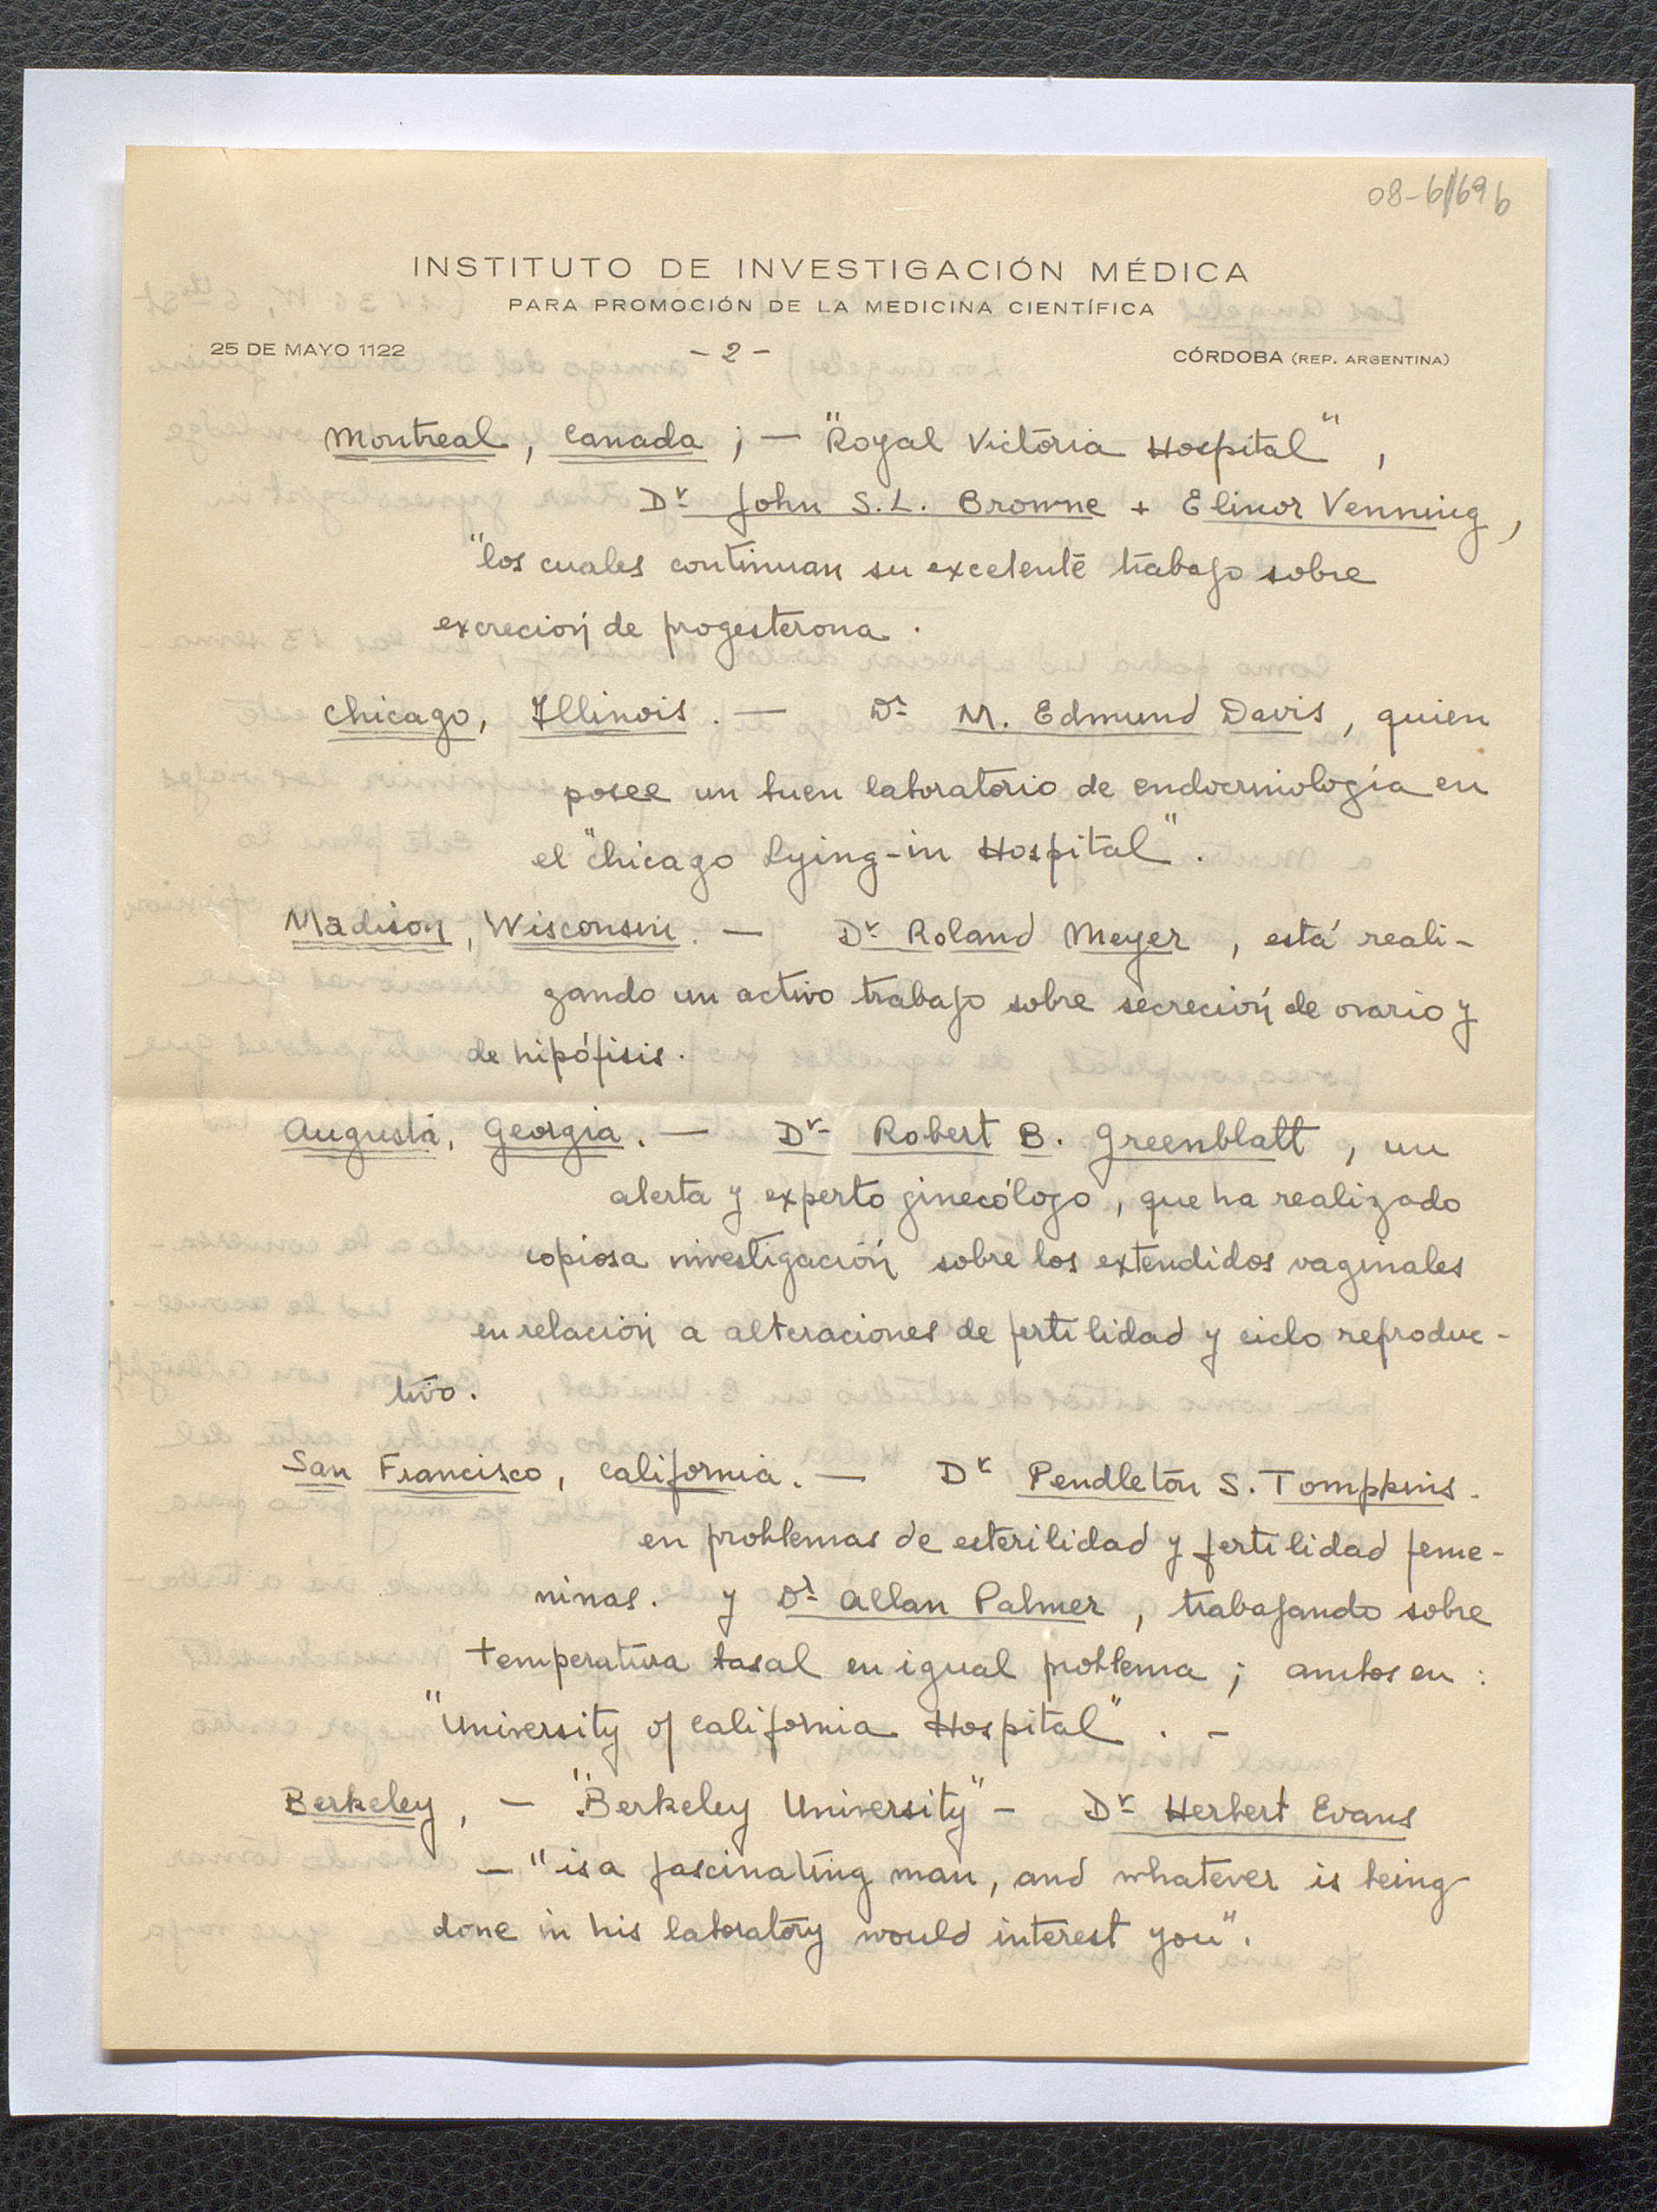 08-6/69 b
INSTITUTO DE INVESTIGACIÓN MÉDICA
PARA PROMOCIÓN DE LA MEDICINA CIENTÍFICA
25 DE MAYO 1122 - 2 - CÓRDOBA (REP. ARGENTINA)
Montreal, Canada ; — "Royal Victoria Hospital",
Dr John S.L. Browne + Elinor Venning,
"los cuales continuan su excelente trabajo sobre
excreción de progesterona.
Chicago, Illinois. — Dr M. Edmund Davis, quien
posee un buen laboratorio de endocrinología en
el "Chicago Lying-in Hospital".
Madison, Wisconsin. — Dr Roland Meyer, está reali-
zando un activo trabajo sobre secreción de ovario y
de hipófisis.
Augusta, Georgia. — Dr Robert B. Greenblatt, un
alerta y experto ginecólogo, que ha realizado
copiosa investigación sobre los extendidos vaginales
en relación a alteraciones de fertilidad y ciclo reproduc-
tivo.
San Francisco, California. — Dr Pendleton S. Tompkins.
en problemas de esterilidad y fertilidad feme-
ninas. y Dr Allan Palmer, trabajando sobre
temperatura basal en igual problema ; ambos en :
"University of California Hospital". -
Berkeley, — "Berkeley University" - Dr Herbert Evans
— "is a fascinating man, and whatever is being
done in his laboratory would interest you".